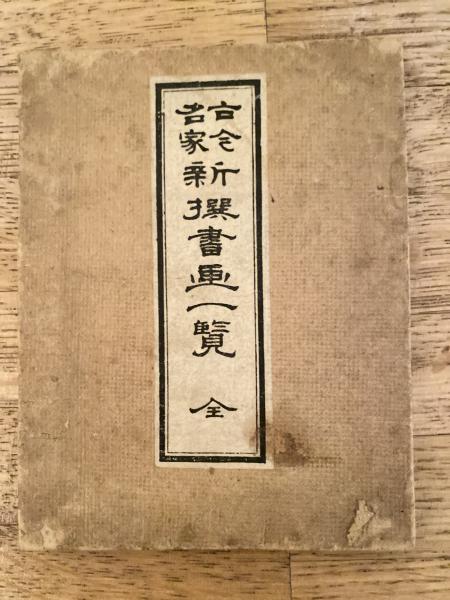 古今
名家
新撰書画一覧 全